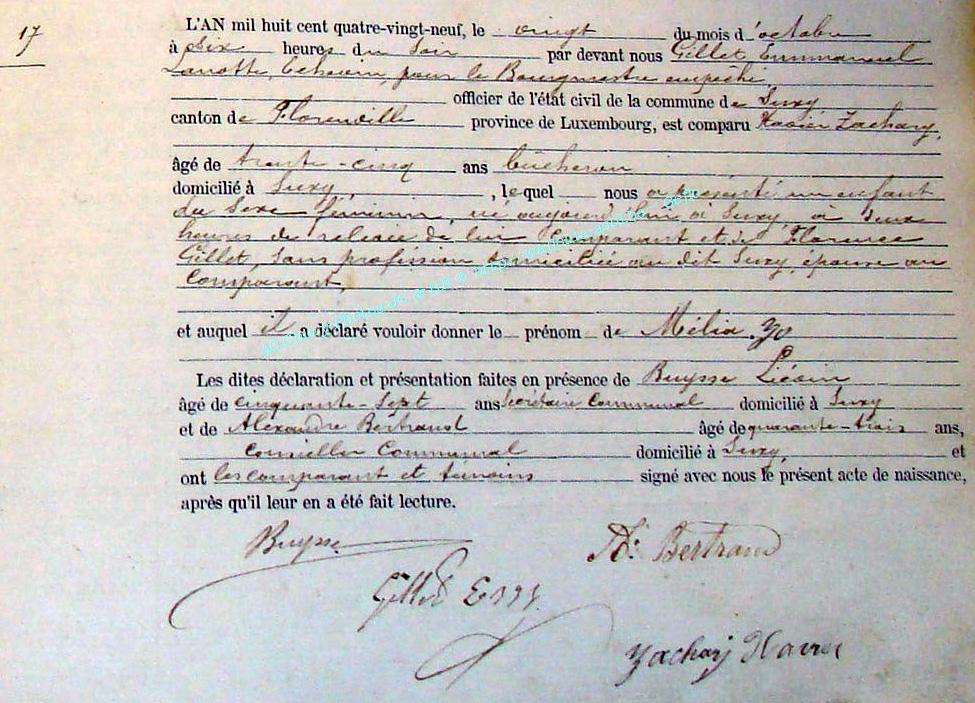 17
L'AN mil huit cent quatre-vingt-neuf, le vingt du mois d'octobre
à six heures du soir par devant nous Gillet, Emmanuel
Lanotte, Echevin, pour le Bourgmestre empêché,
officier de l'état civil de la commune de Suxy
canton de Florenville province de Luxembourg, est comparu Xavier Zachary,
âgé de trente-cinq ans bûcheron
domicilié à Suxy, , lequel nous a présenté un enfant
du sexe féminin, né aujourd'hui à Suxy, à deux
heures de relevée de lui Comparant et de Florence
Gillet, sans profession, domiciliée au dit Suxy, épouse au
Comparant,
et auquel il a déclaré vouloir donner le prénom de Mélia.
Les dites déclaration et présentation faites en présence de Buysse
âgé de cinquante-sept ans Secrétaire Communal domicilié à Suxy
et de Alexandre Bertrand âgé de quarante-trois ans,
Conseiller Communal domicilié à Suxy, et
ont les comparant et témoins signé avec nous le présent acte de naissance,
après qu'il leur en a été fait lecture.
Buysse
A: Bertrand
Gillet
Zachary Xavier